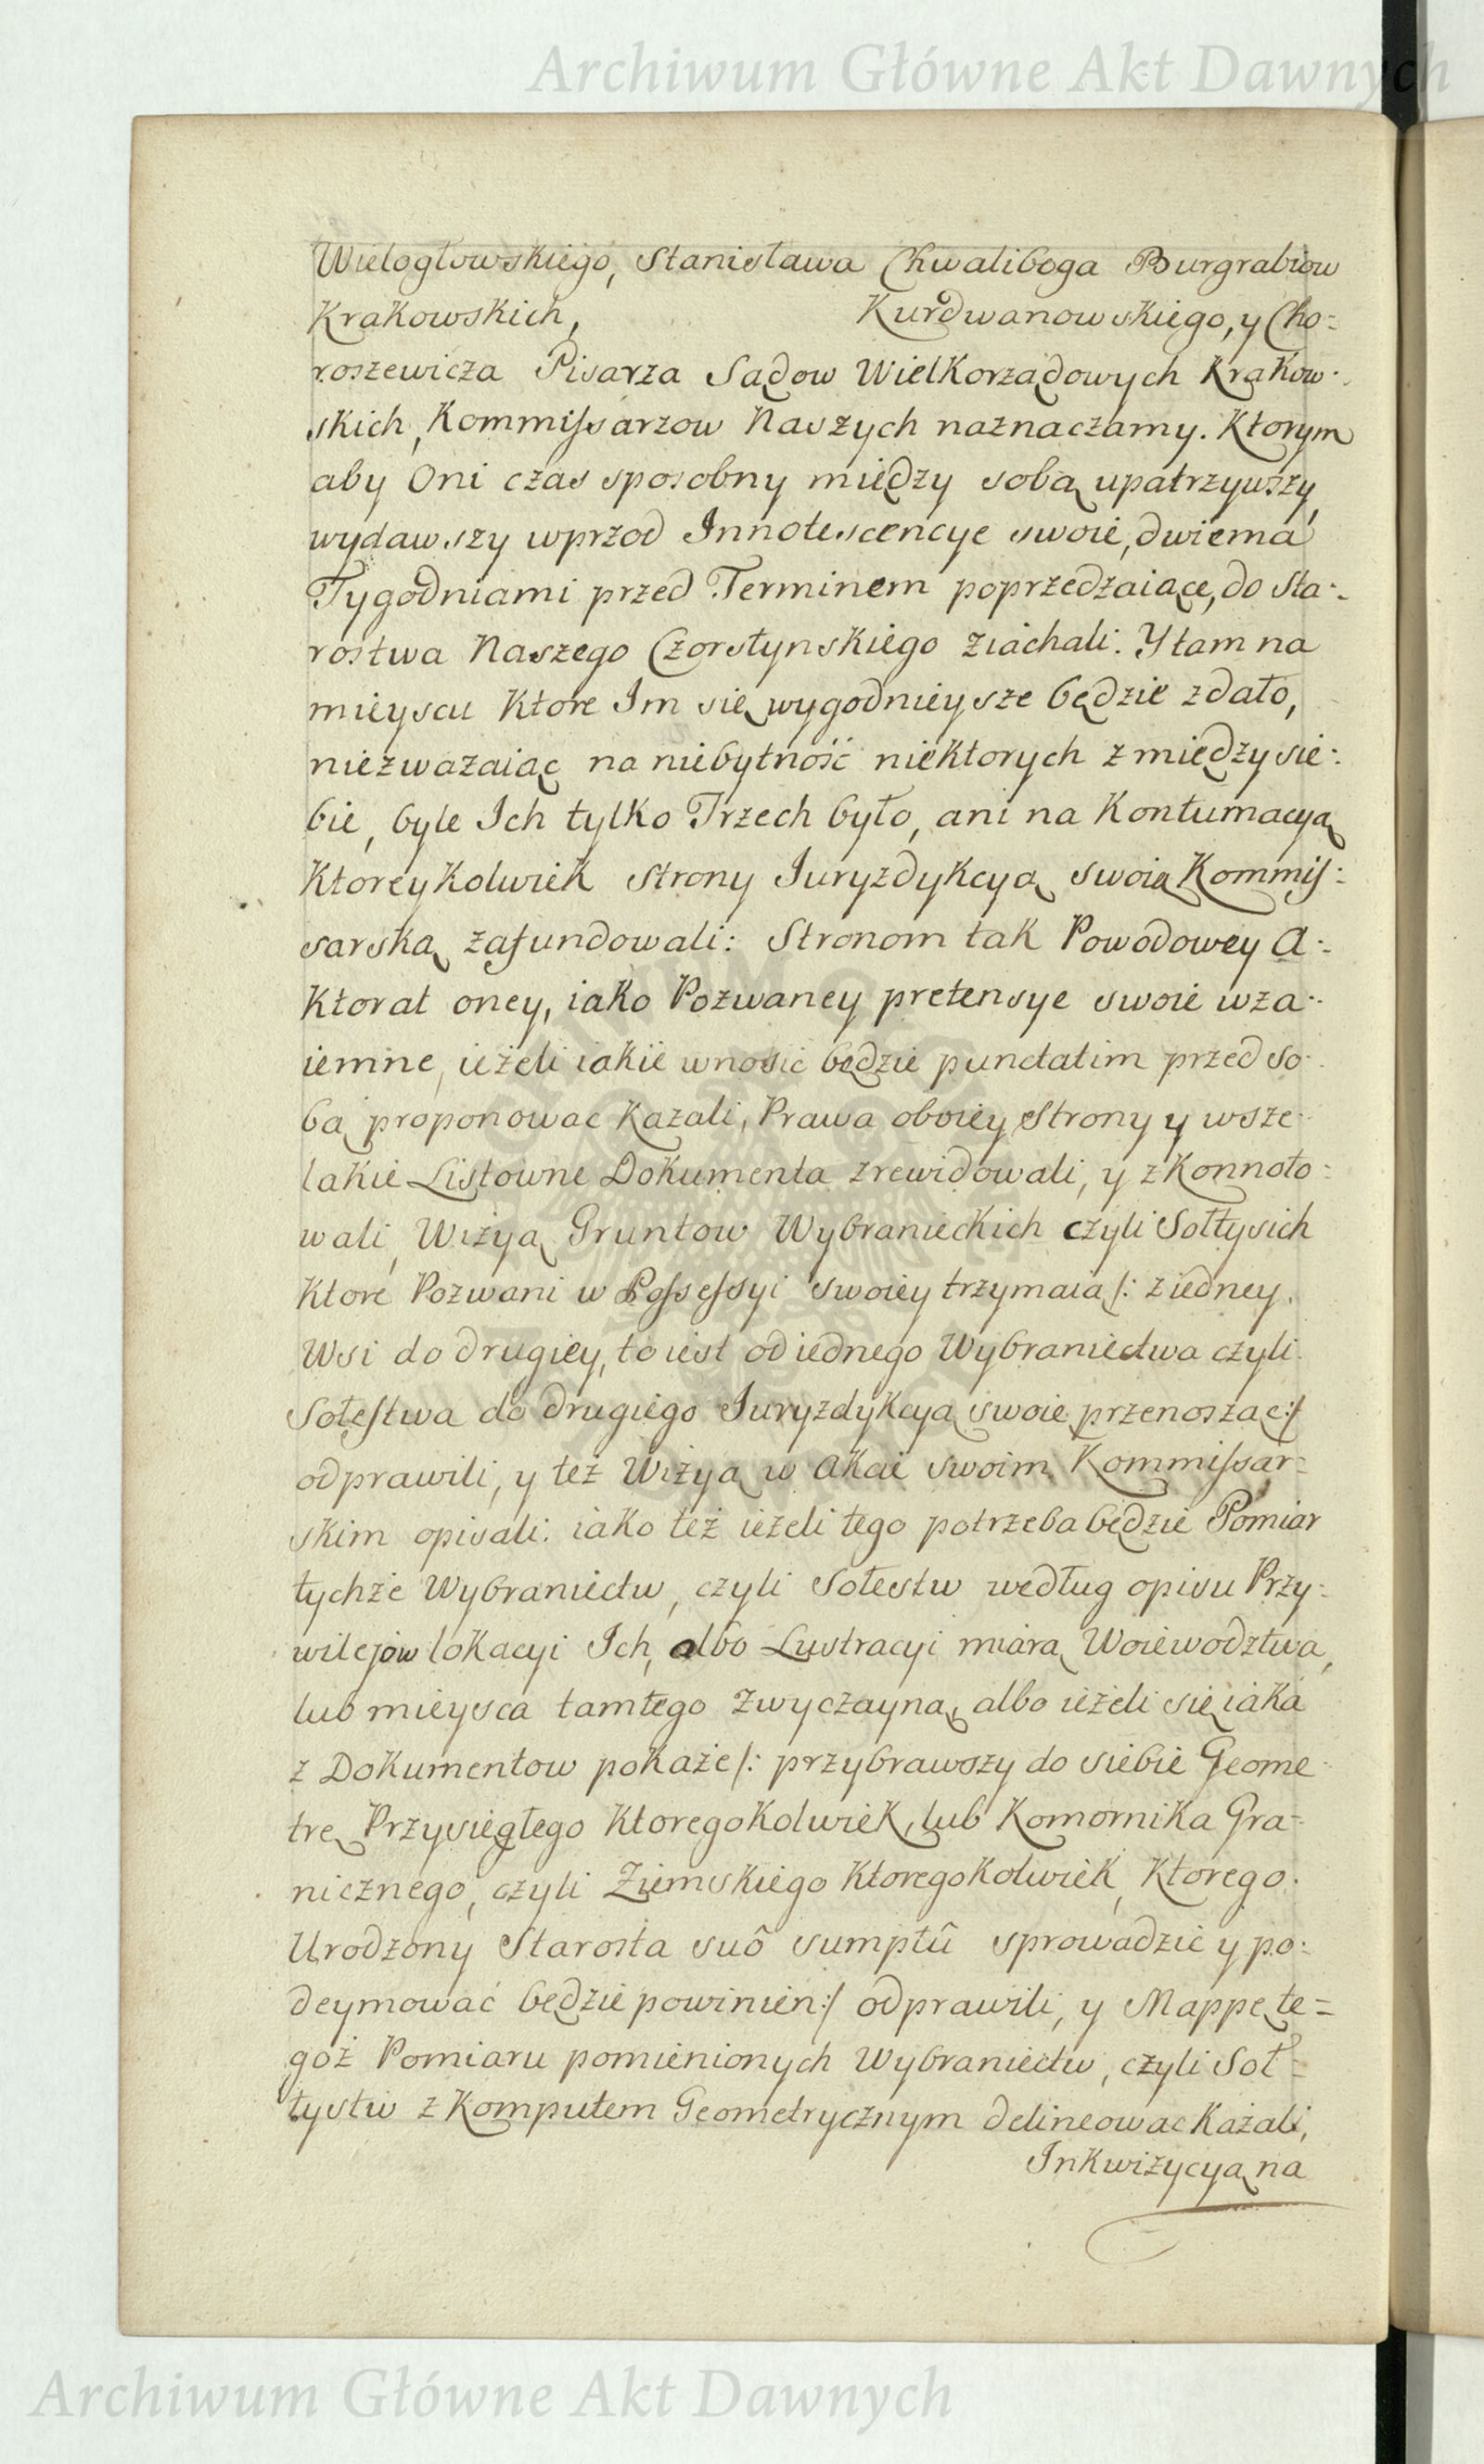 Archiwum Główne Akt Dawnych
Wielogłowskiego, Stanisława Chwaliboga Burgrabiow
Krakowskich, Kurdwanowskiego, y Cho-
roszewicza Pisarza Sądow Wielkorządowych Krakow-
skich, Kommissarzow Naszych naznaczamy. Ktorym
aby Oni czas sposobny między sobą upatrzywszy,
wydawszy wprzod Innotescencye swoie, dwiema
Tygodniami przed Terminem poprzedzaiące, do Sta-
rostwa Naszego Czorstynskiego ziachali: Y tam na
mieyscu Ktore Im się wygodnieysze będzie zdało,
niezwazaiąc na niebytność niektorych z między sie-
bie, byle Ich tylko Trzech było, ani na Kontumacyą
Ktoreykolwiek Strony Iuryzdykcyą swoią Kommis-
sarską zafundowali: Stronom tak Powodowey A-
Ktorat oney, iako Pozwaney pretensye swoie wza-
iemne, ieżeli iakie wnosić będzie punctatim przed so-
bą proponowac Kazali, Prawa oboiey Strony y wsze-
lakie Listowne Dokumenta zrewidowali, y zkonnoto-
wali, Wizyą Gruntow Wybranieckich czyli Sołtysich
Ktore Pozwani w Possessyi swoiey trzymaią /: z iedney
Wsi do drugiey, to iest od iednego Wybraniectwa czyli
Sołestwa do drugiego Iuryzdykcyą swoie przenosząc :/
odprawili, y też Wizyą w Akcie swoim Kommissar-
skim opisali: iako też ieżeli tego potrzeba będzie Pomiar
tychże Wybraniectw, czyli Sołestw według opisu Przy-
wilejow lokacyi Ich, albo Lustracyi miarą Woiewodztwa,
lub mieysca tamtego zwyczayną, albo ieżeli się iaka
z Dokumentow pokaże /: przybrawszy do siebie Geome-
trę Przysięgłego Ktoregokolwiek, lub Komornika Gra-
nicznego, czyli Ziemskiego Ktoregokolwiek, Ktorego
Urodzony Starosta suô sumptû sprowadzić y po-
deymować będzie powinien :/ odprawili, y Mappę te=
goż Pomiaru pomienionych Wybraniectw, czyli Soł-
tystw z Komputem Geometrycznym delineowac Kazali,
Inkwizycyą na
Archiwum Główne Akt Dawnych